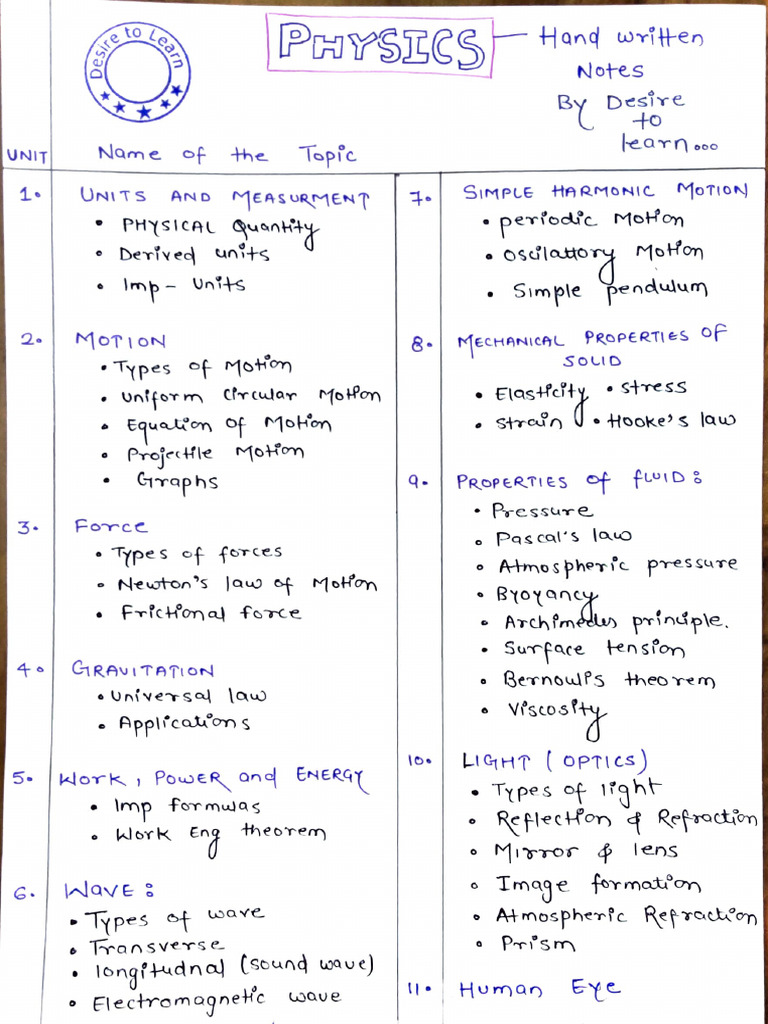 Desire to Learn
PHYSICS — Hand written
Notes
By Desire
to
learn...
UNIT Name of the Topic
1. UNITS AND MEASURMENT
• PHYSICAL Quantity
• Derived units
• Imp - Units
2. MOTION
• Types of Motion
• Uniform Circular Motion
• Equation of Motion
• Projectile Motion
• Graphs
3. Force
• Types of forces
• Newton's law of Motion
• Frictional force
4. GRAVITATION
• Universal law
• Applications
5. Work, POWER and ENERGY
• Imp formulas
• Work Eng theorem
6. Wave:
• Types of wave
• Transverse
• longitudnal (sound wave)
• Electromagnetic wave
7. SIMPLE HARMONIC MOTION
• periodic Motion
• Oscilattory Motion
• Simple pendulum
8. MECHANICAL PROPERTIES OF
SOLID
• Elasticity • stress
• strain • Hooke's law
9. PROPERTIES of fLUID:
• Pressure
• Pascal's law
• Atmospheric pressure
• Byoyancy
• Archimedes principle.
• Surface tension
• Bernouli's theorem
• Viscosity
10. LIGHT (OPTICS)
• Types of light
• Reflection & Refraction
• Mirror & lens
• Image formation
• Atmospheric Refraction
• Prism
11. Human Eye